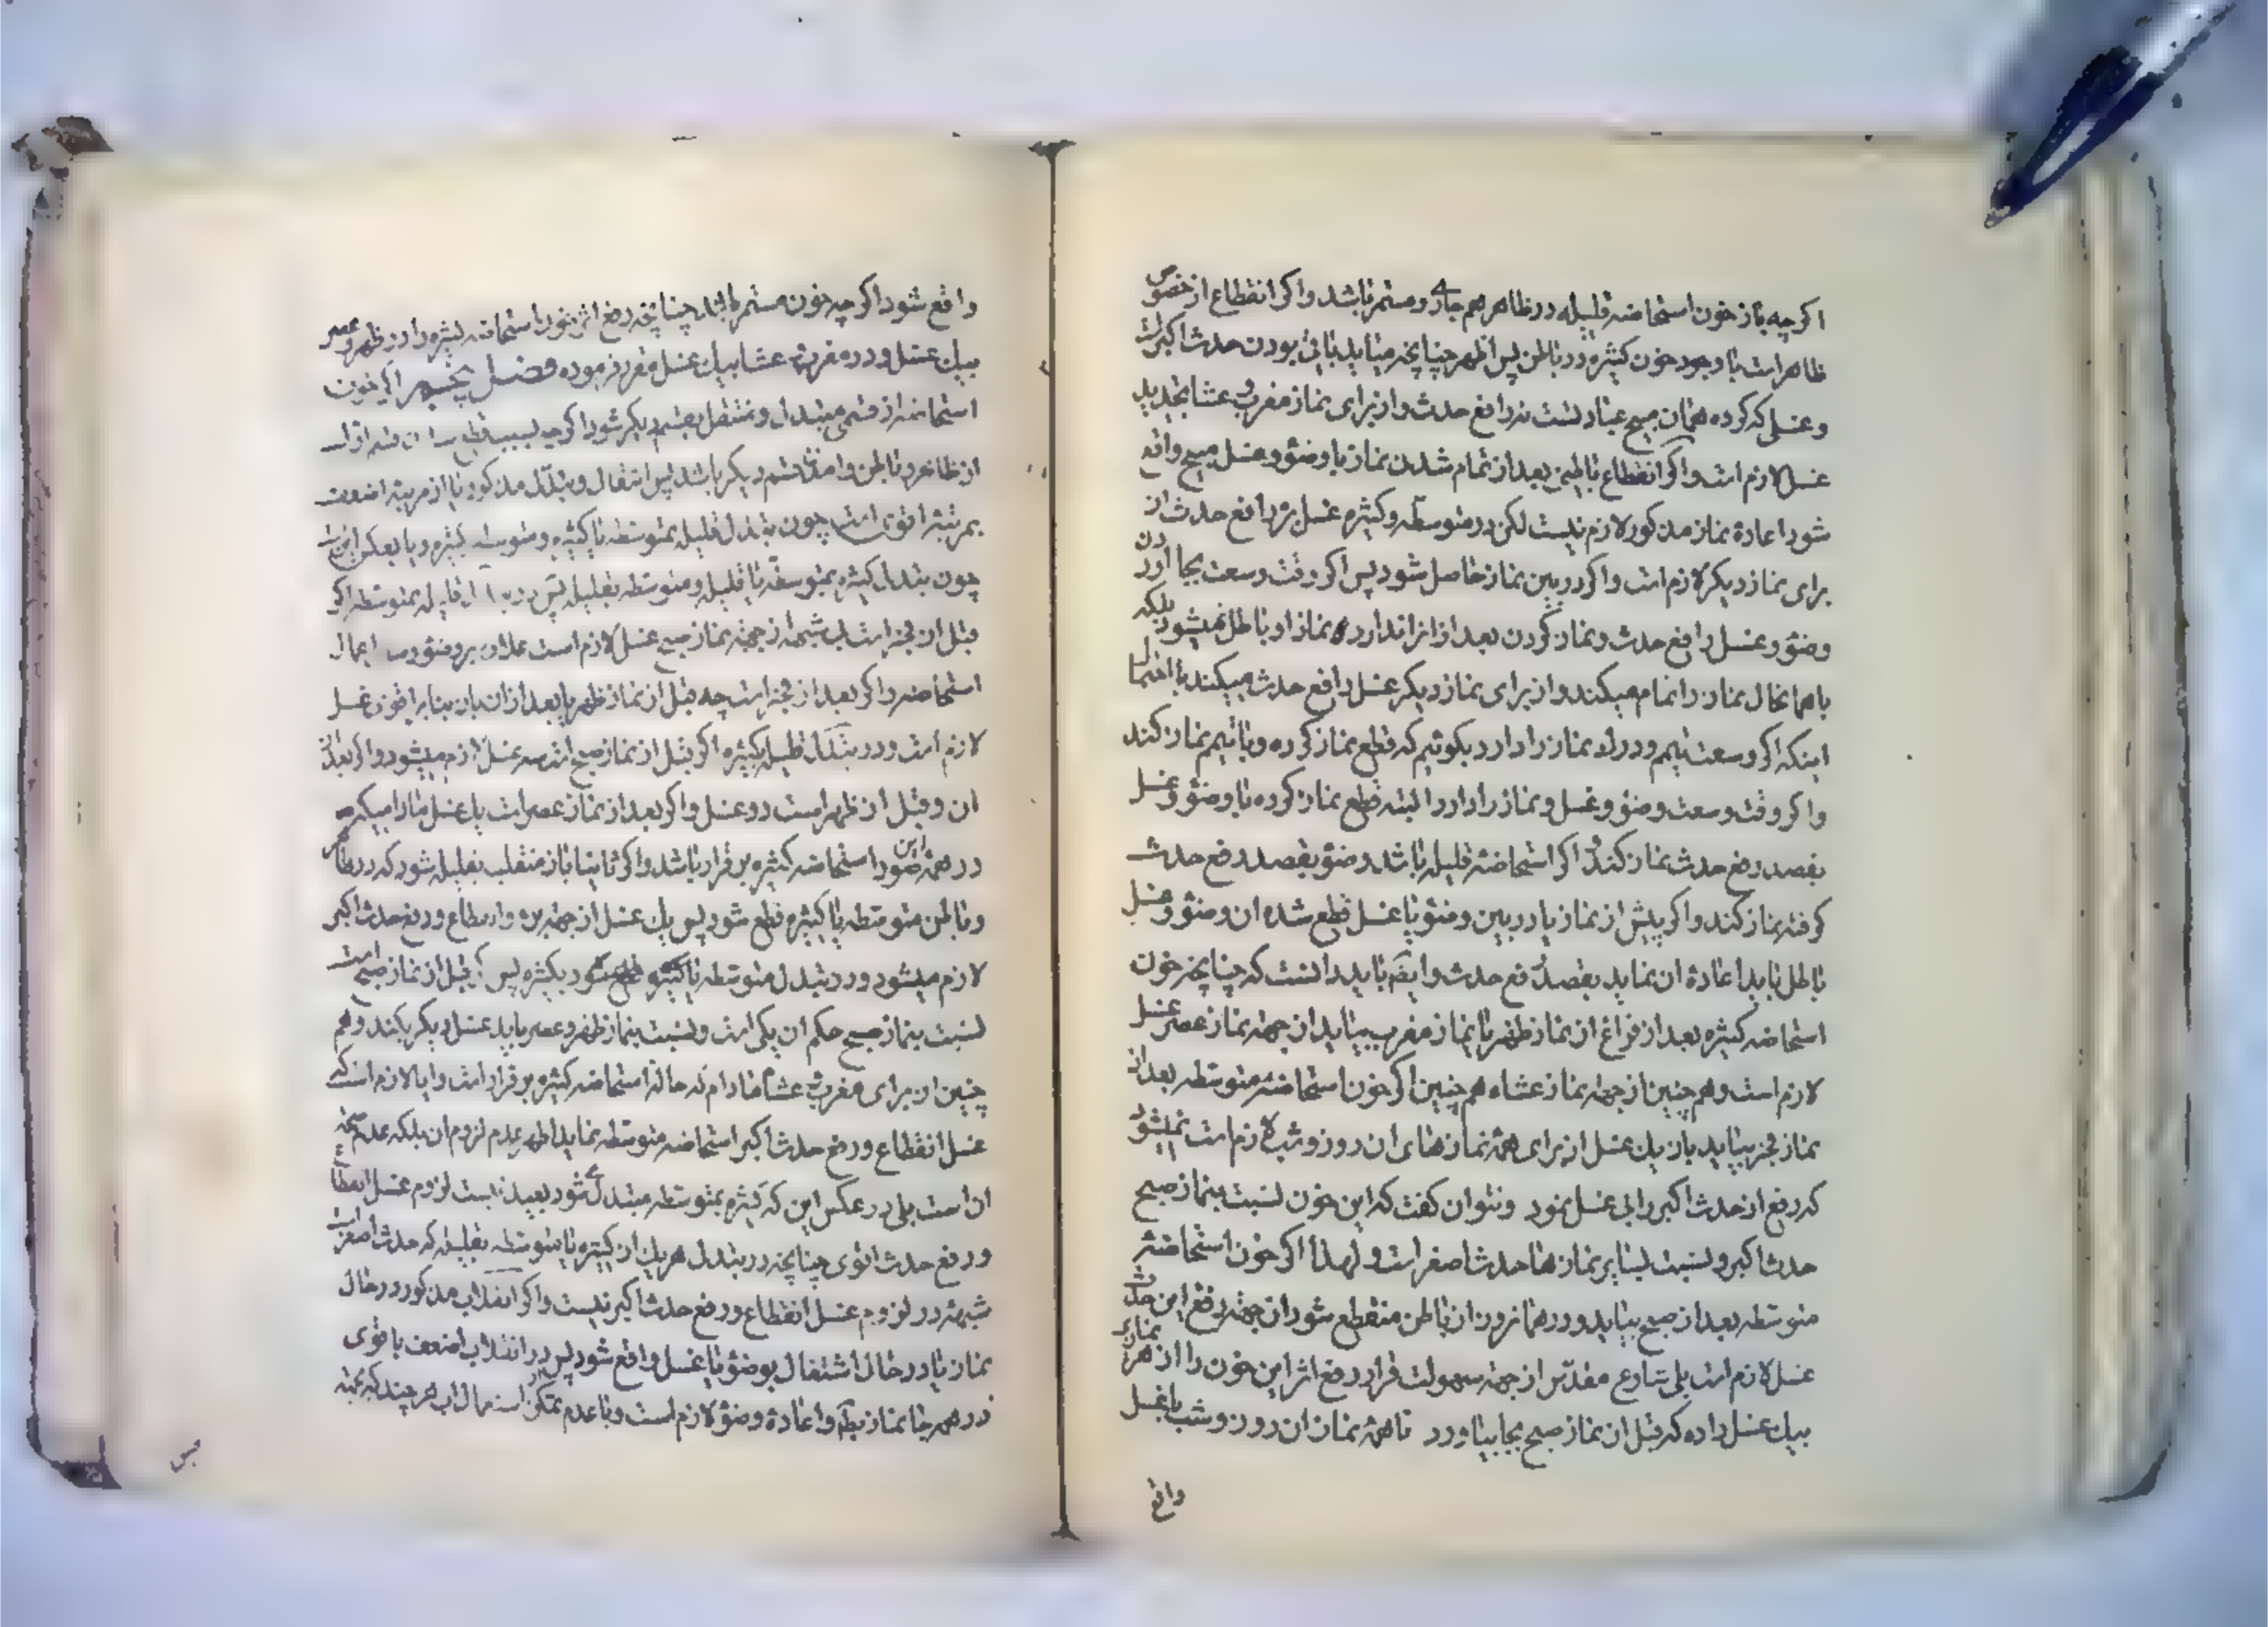 اکرچه باز خون استحاضه قلیله در ظاهر هم جاری و مستمر باشد و اکر انقطاع از خصوص
ظاهر است با وجود خون کثیره در باطن پس اظهر چنانچه میاید باقی بودن حدث اکبر است
و غسلی که کرده همان مبیح عبادتست نه رافع حدث و از برای نماز مغرب و عشا تجدید
غسل لازم است و اکر انقطاع باطنی بعد از تمام شدن نماز با وضؤ و غسل مبیح واقع
شود اعادۀ نماز مذکور لازم نیست لکن در متوسطه و کثیره غسل رافع حدث از
برای نماز دیکر لازم است و اکر در بین نماز حاصل شود پس اکر وقت وسعت بجا اوردن
وضؤ و غسل رافع حدث و نماز کردن بعد از انرا ندارد نماز او باطل نمیشود بلکه
باهمانحال نماز را تمام میکند و از برای نماز دیکر غسل رافع حدث میکند با احتمال
اینکه اکر وسعت تیمم و دراک نماز را دارد بکوئیم که قطع نماز کرده و با تیمم نماز کند
و اکر وقت وسعت وضؤ و غسل و نماز را دارد البته قطع نماز کرده با وضؤ و غسل
بقصد رفع حدث نماز کند و اکر استحاضۀ قلیله باشد وضؤ بقصد رفع حدث
کرفته نماز کند و اکر پیش از نماز یا در بین وضؤ یا غسل قطع شده ان وضؤ و غسل
باطل باید اعادۀ ان نماید بقصد رفع حدث و ایضا باید دانست که چنانچه خون
استحاضه کثیره بعد از فراغ از نماز ظهر یا نماز مغرب بیاید از جهة نماز عصر غسل
لازم است و هم چنین از جهة نماز عشاء هم چنین اکر خون استحاضۀ متوسطه بعد از
نماز فجر بیاید باز یک غسل از برای همۀ نمازهای ان روز و شب لازم است نمیشود
که رفع از حدث اکبر را بی غسل نمود و نتوان کفت که این خون نسبت بنماز صبح
حدث اکبر و نسبت بسایر نمازها حدث اصغر است و لهذا اکر خون استحاضۀ
متوسطه بعد از صبح بیاید و در همانروز از باطن منقطع شود از جهة رفع این حدث
غسل لازم است بلی شارع مقدّس از جهة سهولت قرار رفع اثر این خون را از هر نمازی
بیک غسل داده که قبل از نماز صبح بجا بیاورد تا همۀ نماز ان روز و شب با غسل
واقع
واقع شود اکرچه خون مستمر باشد چنانچه رفع اثر خون استحاضه کثیره را در ظهر و عصر
بیک غسل و در مغرب و عشا بیک غسل مقرر فرموده فصل پنجم اکر خون
استحاضه از قسمی متبدل و منتقل بقسم دیکر شود اکرچه بسبب قطع ان قسم اول
از ظاهر و باطن و امدن قسم دیکر باشد پس انتقال و تبدّل مذکور یا از مرتبه اضعف
بمرتبۀ اقوی است چون تبدل قلیله بمتوسطه یا کثیره و متوسطه بکثیره و یا بعکس این است
چون تبدل کثیره بمتوسطه یا قلیله و متوسطه بقلیله پس در قلیله بمتوسطه اکر
قبل از فجر است بی شبهه از جهة نماز صبح غسل لازم است علاوه بر وضؤ و اعمال
استحاضه و اکر بعد از فجر است چه قبل از نماز ظهر یا بعد از ان باز بنابر اقوی غسل
لازم است و در تبدّل قلیله بکثیره اکر قبل از نماز صبح است سه غسل لازم میشود و اکر بعد از
ان و قبل از ظهر است دو غسل و اکر بعد از نماز عصر است یک غسل
در همۀ این صور استحاضه کثیره بر قرار باشد و اکر ثانیا باز منقلب بقلیله شود که در ظاهر
و باطن متوسطه یا کثیره قطع شود پس یک غسل از جهة و رفع حدث اکبر
لازم میشود و در تبدل متوسطه بکثیره پس قبل از نماز صبح است
نسبت بنماز صبح حکم ان یکی است و نسبت بنماز ظهر و عصر باید غسل دیکر بکند و هم
چنین از برای مغرب و عشا مادام که حالة استحاضه کثیره بر قرار است و ایا لازم است که
غسل انقطاع و رفع حدث اکبر استحاضه متوسطه نماید اظهر عدم لزوم ان بلکه عدم صحّة
ان است بلی در عکس این که کثیره بمتوسطه متبدل شود بعید نیست لزوم غسل انقطاع
و رفع حدث اقوی چنانچه در تبدل هر یک از کثیره یا متوسطه بقلیله که حدث اصغر است
شبهۀ در لزوم غسل انقطاع و رفع حدث اکبر نیست و اکر انقلاب مذکور در حال
نماز یا در حال اشتغال بوضؤ یا غسل واقع شود پس در انقلاب اضعف باقوی
در همه جا نماز و اعادۀ وضؤ لازم است و با عدم تمکن استعمال اب هر چند که بجهة